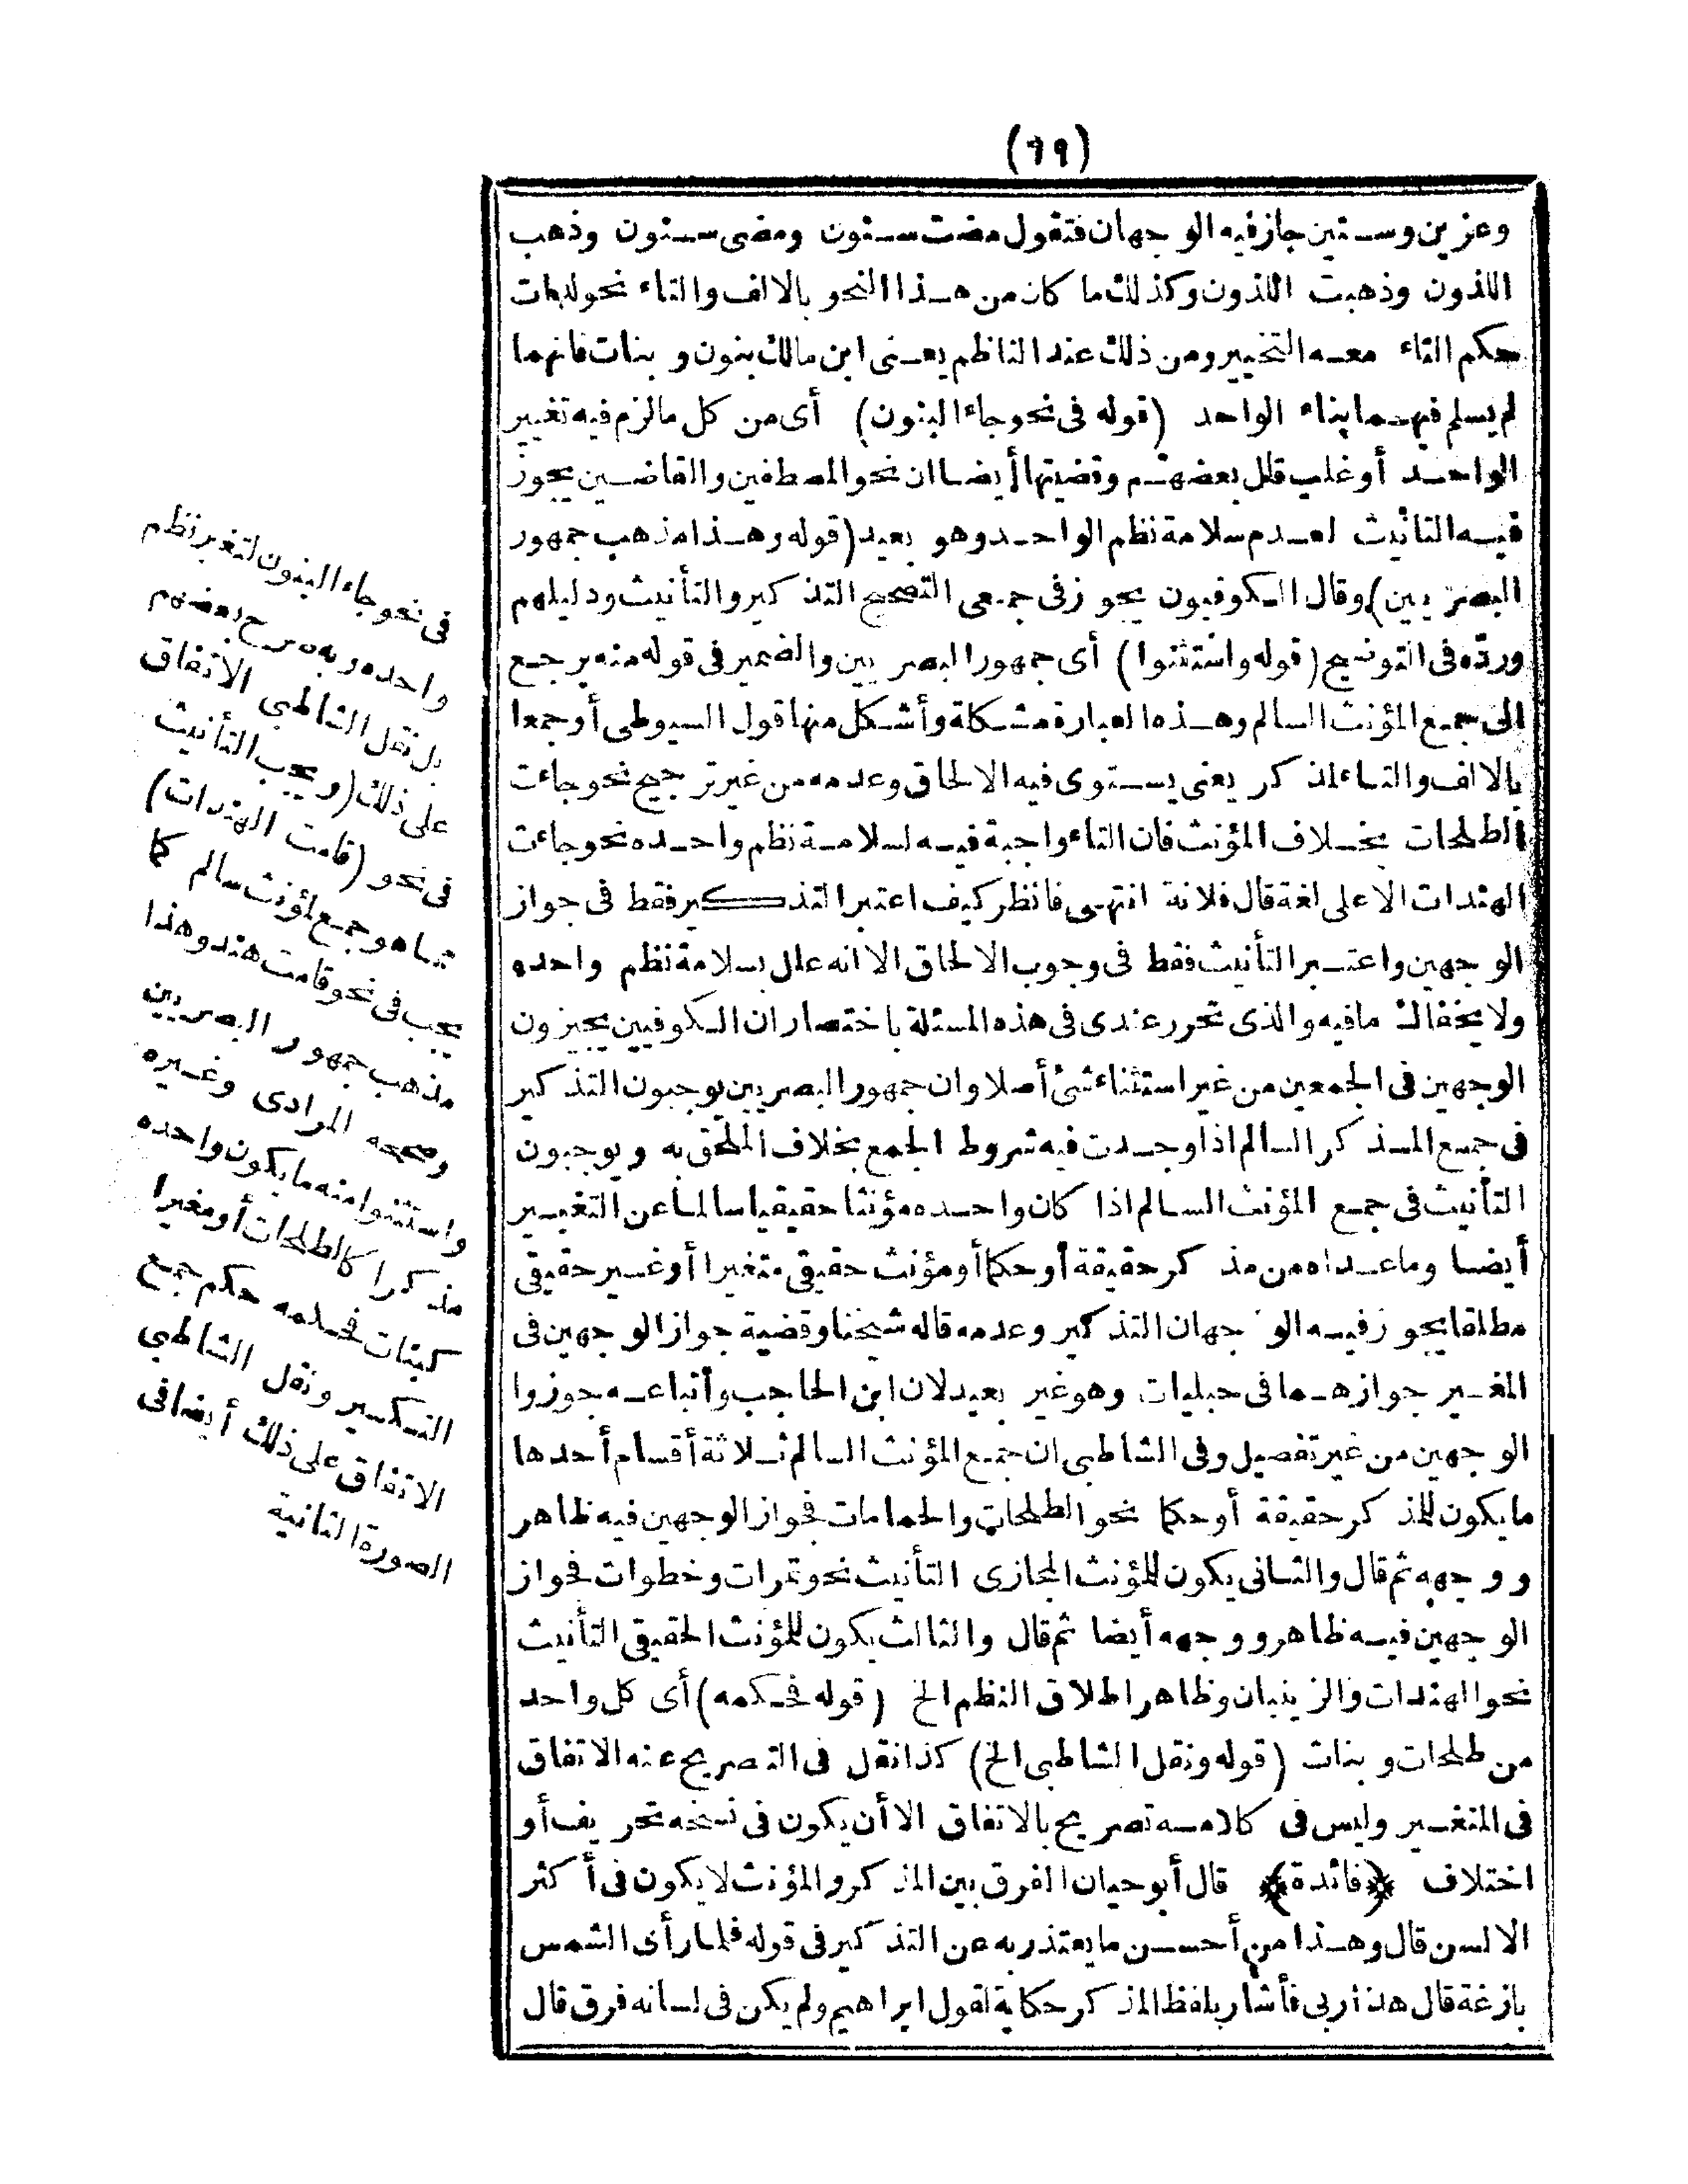 (٦٩)
وعزين وسنين جاز فيه الوجهان فتقول مضت سنون ومضى سنون وذهب
اللذون وذهبت اللذون وكذلك ما كان من هذا النحو بالالف والتاء نحو لدات
حكم التاء معه التخيير ومن ذلك عند الناظم يعنى ابن مالك بنون وبنات فانهما
لم يسلم فيهما بناء الواحد (قوله فى نحو جاء البنون) أى من كل مالزم فيه تغيير
الواحد أو غلب قلل بعضهم وقضيتها أيضا ان نحو المصطفين والقاضين يجوز
فيه التأنيث لعدم سلامة نظم الواحد وهو بعيد (قوله وهذا مذهب جمهور
البصريين) وقال الكوفيون يجوز فى جمعى التصحيح التذكير والتأنيث ودليلهم
وردّه فى التوضيح (قوله واستثنوا) أى جمهور البصريين والضمير فى قوله منه يرجع
الى جمع المؤنث السالم وهذه العبارة مشكلة وأشكل منها قول السيوطى أو جمعا
بالالف والتاء لمذكر يعنى يستوى فيه الالحاق وعدمه من غير ترجيح نحو جاءت
الطلحات بخلاف المؤنث فان التاء واجبة فيه لسلامة نظم واحده نحو جاءت
الهندات الا على لغة قال فلانة انتهى فانظر كيف اعتبر التذكير فقط فى جواز
الوجهين واعتبر التأنيث فقط فى وجوب الالحاق الا انه علل بسلامة نظم واحده
ولا يخفاك مافيه والذى تحرر عندى فى هذه المسئلة باختصار ان الكوفيين يجيزون
الوجهين فى الجمعين من غير استثناء شئ أصلا وان جمهور البصريين يوجبون التذكير
فى جمع المذكر السالم اذا وجدت فيه شروط الجمع بخلاف الملحق به ويوجبون
التأنيث فى جمع المؤنث السالم اذا كان واحده مؤنثا حقيقيا سالما عن التغيير
أيضا وماعداه من مذكر حقيقة أو حكما أو مؤنث حقيقى متغيرا أو غير حقيقى
مطلقا يجوز فيه الوجهان التذكير وعدمه قاله شيخنا وقضية جواز الوجهين فى
المغير جوازهما فى حبليات وهو غير بعيد لان ابن الحاجب وأتباعه جوزوا
الوجهين من غير تفصيل وفى الشاطبى ان جمع المؤنث السالم ثلاثة أقسام أحدها
مايكون للمذكر حقيقة أو حكما نحو الطلحات والحمامات فجواز الوجهين فيه ظاهر
ووجهه ثم قال والثانى يكون للمؤنث المجازى التأنيث نحو تمرات وخطوات فجواز
الوجهين فيه ظاهر ووجهه أيضا ثم قال والثالث يكون للمؤنث الحقيقى التأنيث
نحو الهندات والزينبات وظاهر اطلاق النظم الخ (قوله فحكمه) أى كل واحد
من طلحات وبنات (قوله ونقل الشاطبى الخ) كذا نقل فى التصريح عنه الاتفاق
فى المتغير وليس فى كلامه تصريح بالاتفاق الا أن يكون فى نسخه تحريف أو
اختلاف ﴿فائدة﴾ قال أبو حيان الفرق بين المذكر والمؤنث لا يكون فى أكثر
الالسن قال وهذا من أحسن مايعتذر به عن التذكير فى قوله فلما رأى الشمس
بازغة قال هذا ربى فأشار بلفظ المذكر حكاية لقول ابراهيم ولم يكن فى لسانه فرق قال
فى نحو جاء البنون لتغير نظم
واحده وبه صرح بعضهم
بل نقل الشاطبى الاتفاق
على ذلك (ويجب التأنيث
فى نحو (قامت الهندات)
مما هو جمع لمؤنث سالم كما
يجب فى نحو قامت هند وهذا
مذهب جمهور البصريين
وصححه المرادى وغيره
واستثنوا منه ما يكون واحده
مذكرا كالطلحات أو مغيرا
كبنات فحكمه حكم جمع
التكسير ونقل الشاطبى
الاتفاق على ذلك أيضا فى
الصورة الثانية